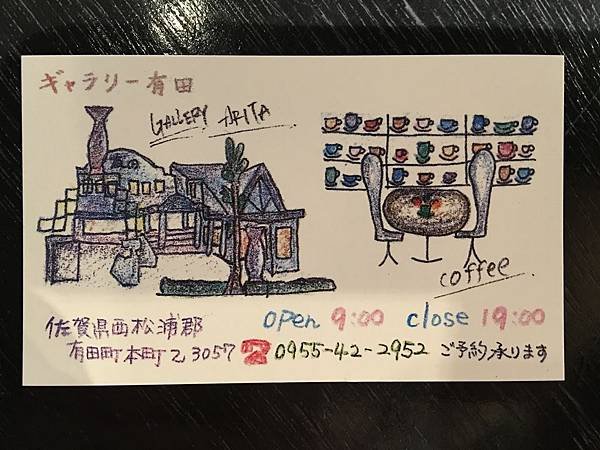 ギャラリー有田
GALLERY ARITA
coffee
open 9:00 close 19:00
佐賀県西松浦郡
有田町本町乙3057 ☎ 0955-42-2952 ご予約承ります